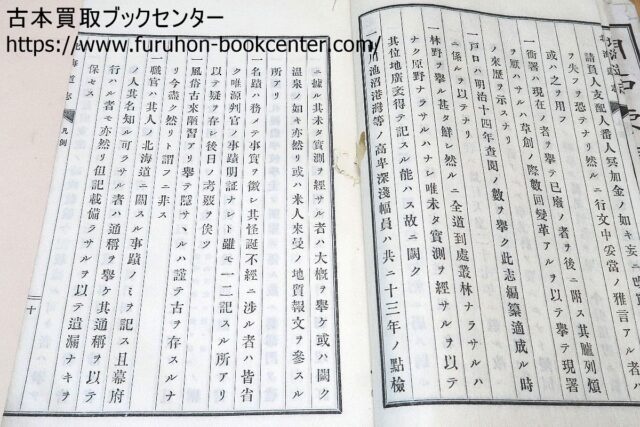 古本買取ブックセンター
https://www.furuhon-bookcenter.com/
請負人支配人番人冥加金ノ如キ妄ニ
ヲ失フヲ恐テナリ然ルニ行文中妥當ノ雅言アル者ハ
或ハ之ヲ用フ
一衙署ハ現在ノ者ヲ擧テ已廢ノ者ヲ後ニ附ス其臚列煩
シキカ如シト雖モ草創ノ際數回變革アルヲ以テ擧テ現署
ノ來歷ヲ示スナリ
一戸口ハ明治十四年查閱ノ數ヲ擧ク此志編纂適成ル時
ニ係ルヲ以テナリ
一林野ヲ擧ル甚タ鮮シ然ルニ全道到處叢林ナラサルハ
ナク原野ナラサルハナシ唯未タ實測ヲ經サルヲ以テ
其位地廣袤得テ記スル能ハス故ニ闕ク
一山川池沼港灣等ノ高卑深淺幅員ハ共ニ十三年ノ點檢
ニ據ル其未タ實測ヲ經サル者ハ大槪ヲ擧ケ或ハ闕ク
溫泉ノ如キ亦然リ或ハ米人來曼ノ地質報文ヲ參スル
所アリ
一名蹟ハ務メテ事實ヲ徵シ其怪誕不經ニ涉ル者ハ皆省
ク唯源判官ノ事蹟明証ナシト雖モ一二記スル所アリ
以テ疑ヲ存シ後日ノ考覈ヲ俟ツ
一風俗古來陋習アリ擧テ隱サヽルハ謹テ古ヲ存スルナ
リ今盡ク然リト謂フニ非ス
一職官ハ其人ノ北海道ニ關スル事蹟ノミヲ記ス且幕府
ノ人其名知ル可ラサル者ハ通稱ヲ擧ケ其通稱ヲ以テ
行ハルヽ者モ亦然リ但記載備ラサルヲ以テ遺漏ナキヲ
保セス
海道志
凡例
十